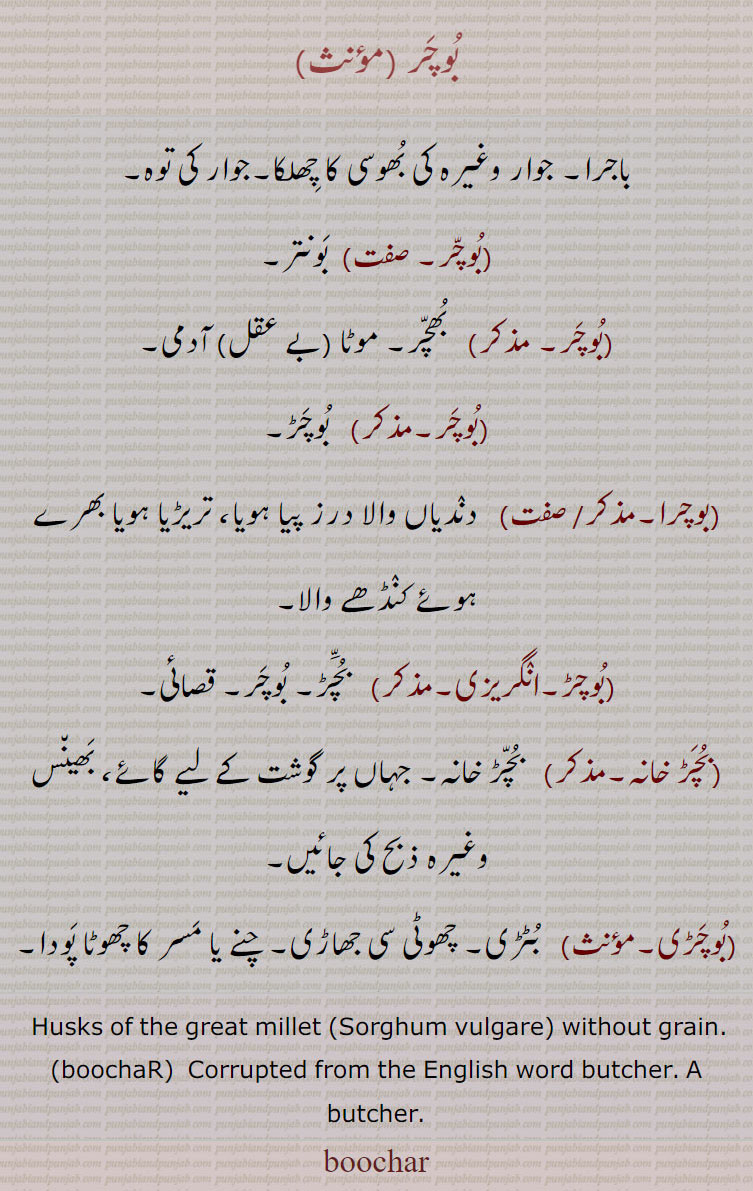 بُوچَر (مؤنث)
باجرا۔ جوار وغیرہ کی بُھوسی کا چِھلکا۔جوار کی توہ۔
(بُوچّر۔ صفت) بَونتر۔
(بُوچَر۔ مذکر) بُھچّر۔ موٹا (بے عقل) آدمی۔
(بُوچَر۔مذکر) بُوچَڑ۔
(بوچرا۔مذکر/ صفت) دن٘دیاں والا درز پیا ہویا، تریڑیا ہویا بھرے
ہوئے کن٘ڈھے والا۔
(بُوچڑ۔ان٘گریزی۔مذکر) بُچِّڑ۔ بُوچَر۔ قصائی۔
(بُچَڑ خانہ۔مذکر) بُچّڑ خانہ۔ جہاں پر گوشت کے لیے گائے، بَھینّس
وغیرہ ذبح کی جائیں۔
(بُوچَڑی۔مؤنث) بُٹڑی۔ چھوٹی سی جھاڑی۔ چنے یا مَسر کا چھوٹا پَودا۔
Husks of the great millet (Sorghum vulgare) without grain.
(boochaR) Corrupted from the English word butcher. A
butcher.
boochar